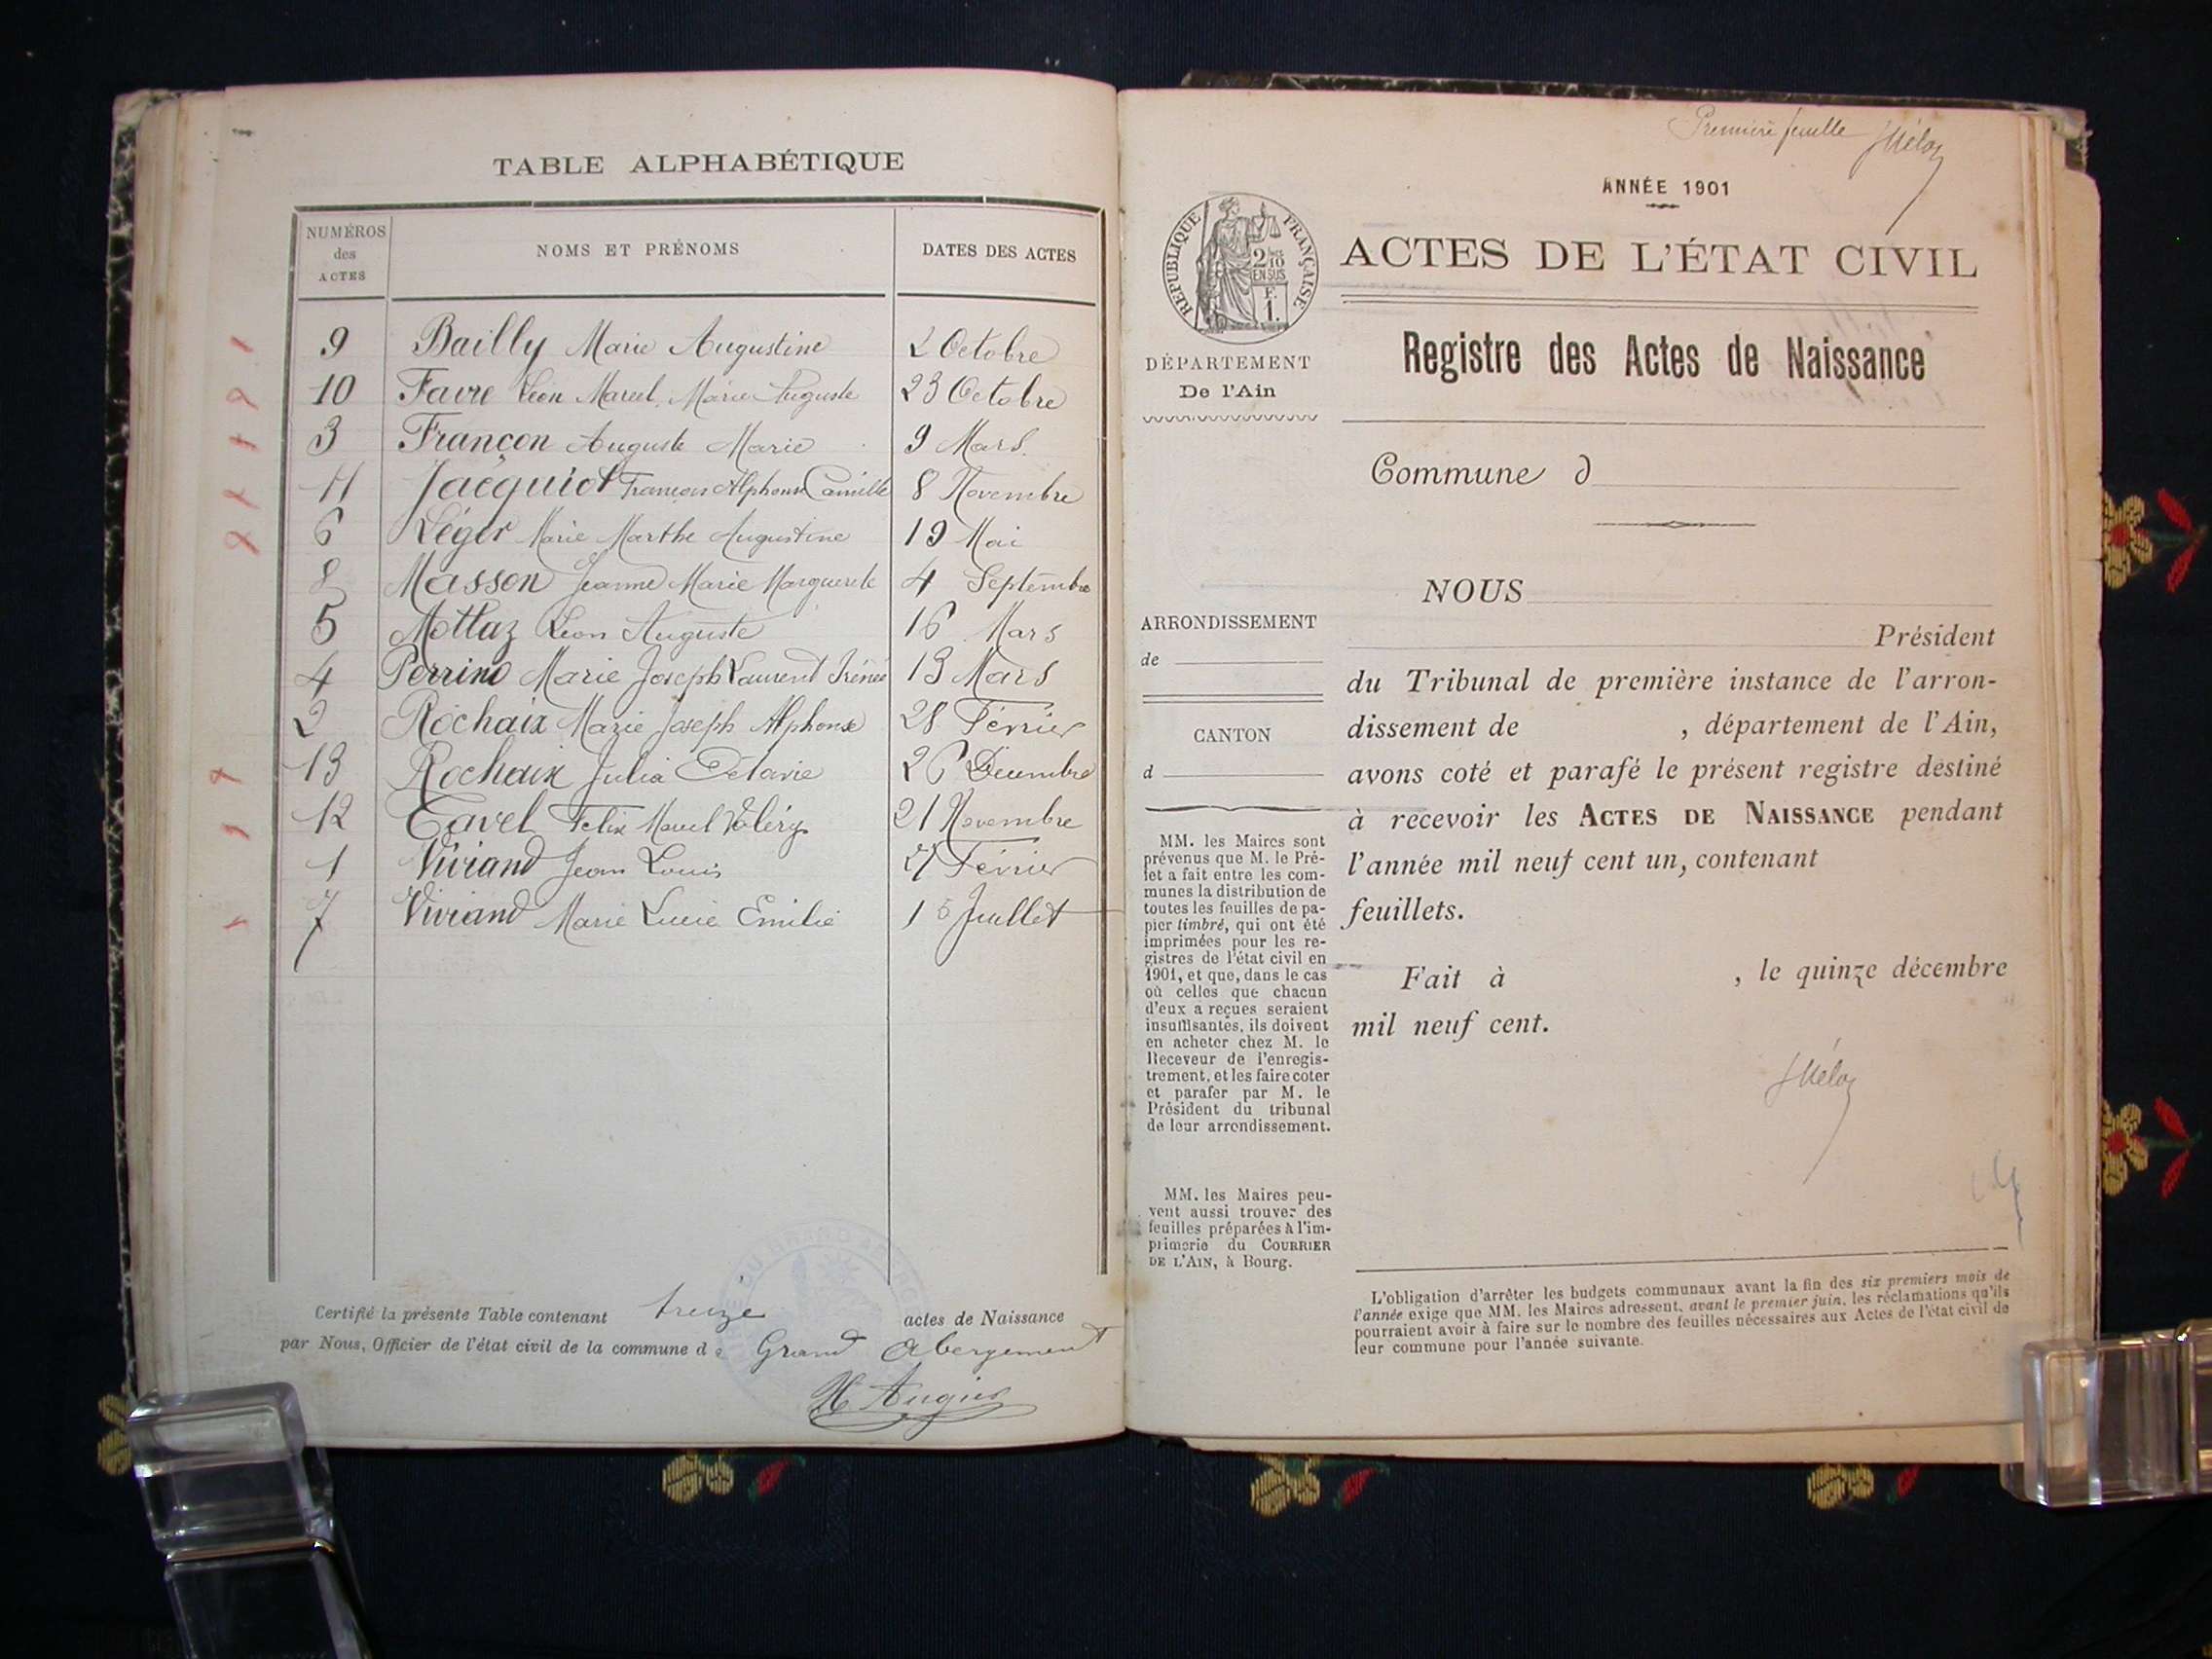 TABLE ALPHABÉTIQUE
NUMÉROS des ACTES
NOMS ET PRÉNOMS
DATES DES ACTES
9 Bailly Marie Augustine 2 Octobre
10 Favre Léon Marcel Marie Auguste 23 Octobre
3 Françon Auguste Marie 9 Mars
11 Jacquiot François Alphonse Camille 8 Novembre
6 Léger Marie Marthe Augustine 19 Mai
8 Masson Jeanne Marie Marguerite 4 Septembre
5 Mottaz Léon Auguste 16 Mars
4 Perrino Marie Joseph Laurent Irénée 13 Mars
2 Rochaix Marie Joseph Alphonse 28 Février
13 Rochaix Julia Octavie 26 Décembre
12 Tavel Felix Marcel Valéry 21 Novembre
1 Viviand Jean Louis Février
7 Viviand Marie Lucie Emilie 15 Juillet
Certifié la présente Table contenant treize actes de Naissance
par Nous, Officier de l'état civil de la commune de Grand Abergement
H Augier
Première feuille
ANNÉE 1901
RÉPUBLIQUE FRANÇAISE
2/10
EN SUS
F.
1.
ACTES DE L'ÉTAT CIVIL
DÉPARTEMENT
De l'Ain
Registre des Actes de Naissance
Commune d
ARRONDISSEMENT
de
CANTON
d
MM. les Maires sont
prévenus que M. le Pré-
fet a fait entre les com-
munes la distribution de
toutes les feuilles de pa-
pier timbré, qui ont été
imprimées pour les re-
gistres de l'état civil en
1901, et que, dans le cas
où celles que chacun
d'eux a reçues seraient
insuffisantes, ils doivent
en acheter chez M. le
Receveur de l'enregis-
trement, et les faire coter
et parafer par M. le
Président du tribunal
de leur arrondissement.
MM. les Maires peu-
vent aussi trouver des
feuilles préparées à l'im-
primerie du COURRIER
DE L'AIN, à Bourg.
NOUS
Président
du Tribunal de première instance de l'arron-
dissement de , département de l'Ain,
avons coté et parafé le présent registre destiné
à recevoir les ACTES DE NAISSANCE pendant
l'année mil neuf cent un, contenant
feuillets.
Fait à , le quinze décembre
mil neuf cent.
L'obligation d'arrêter les budgets communaux avant la fin des six premiers mois de
l'année exige que MM. les Maires adressent, avant le premier juin, les réclamations qu'ils
pourraient avoir à faire sur le nombre des feuilles nécessaires aux Actes de l'état civil de
leur commune pour l'année suivante.